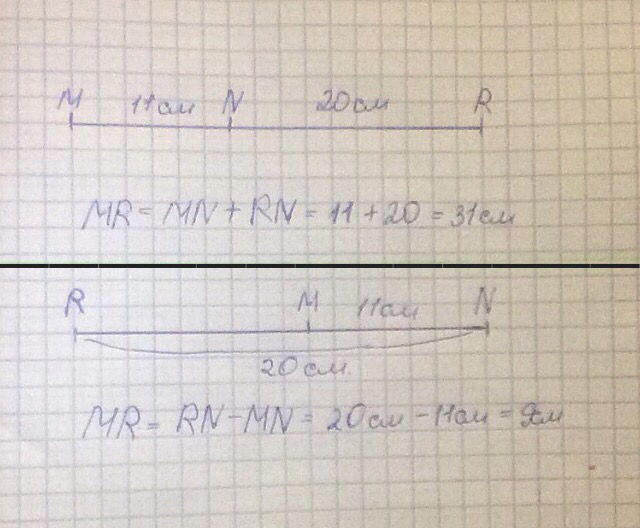 M 11см N 20см R
MR = MN + RN = 11 + 20 = 31см
R M 11см N
20см.
MR = RN - MN = 20см - 11см = 9см